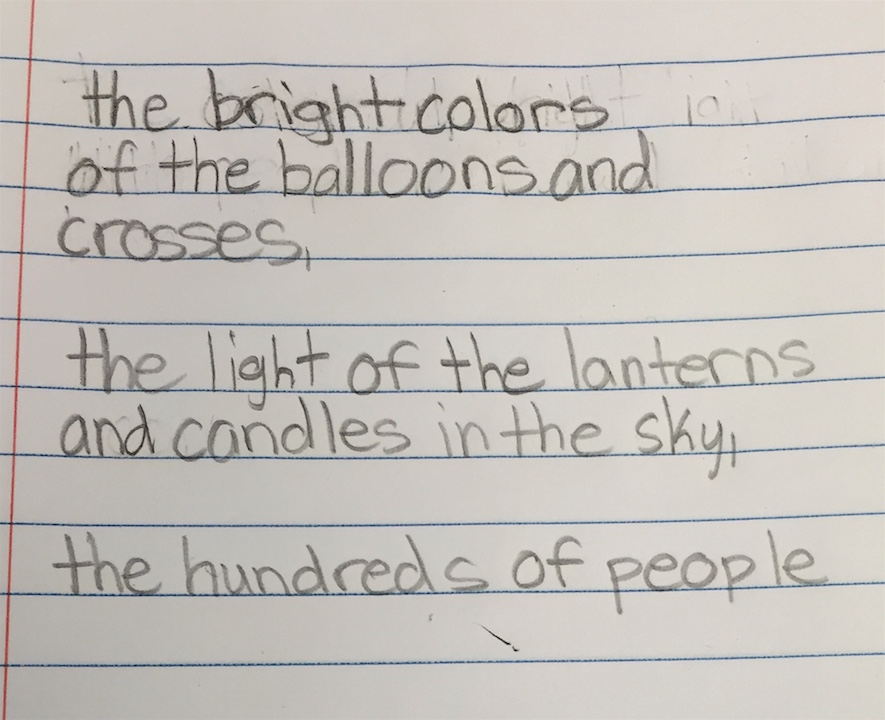 the bright colors
of the balloons and
crosses,
the light of the lanterns
and candles in the sky,
the hundreds of people